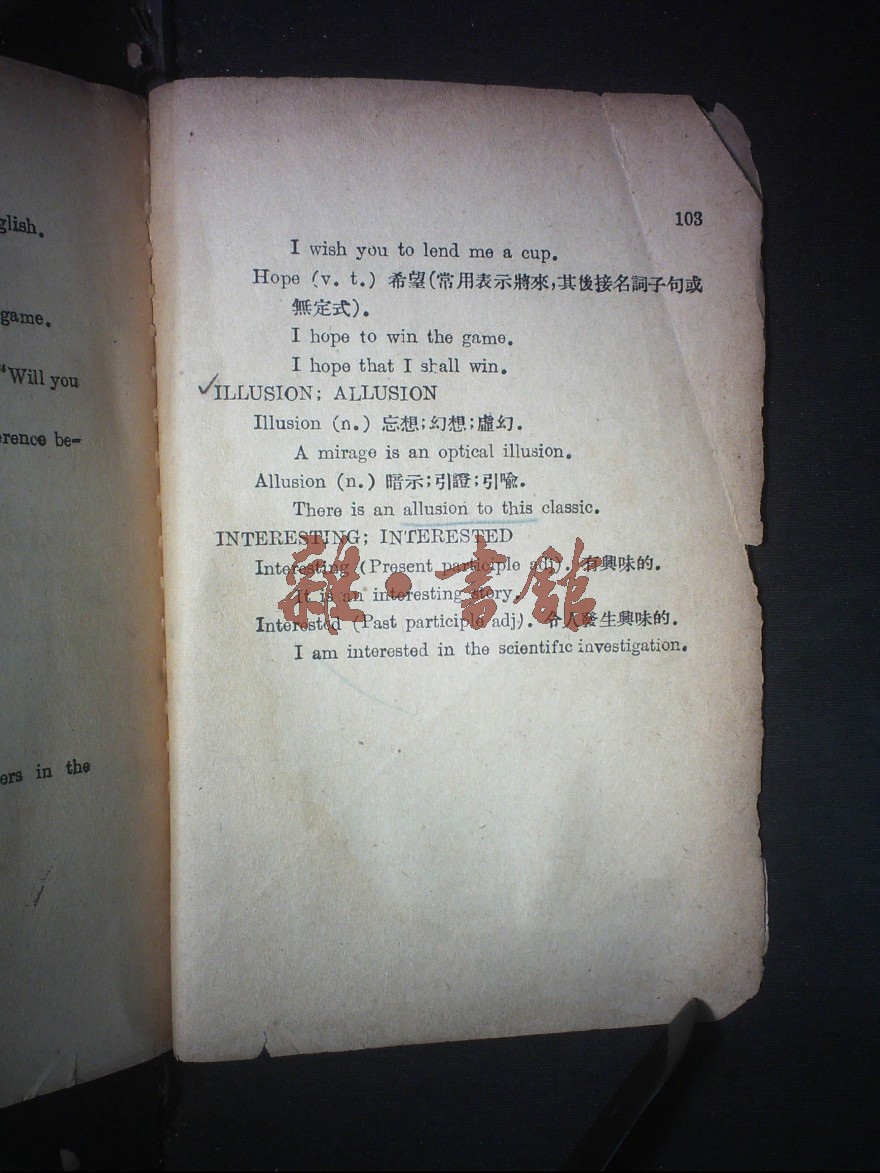 glish.
game.
"Will you
rence be-
ers in the
103
I wish you to lend me a cup.
Hope (v. t.) 希望(常用表示將來,其後接名詞子句或
無定式).
I hope to win the game.
I hope that I shall win.
✓ILLUSION; ALLUSION
Illusion (n.) 忘想;幻想;虛幻.
A mirage is an optical illusion.
Allusion (n.) 暗示;引證;引喩.
There is an allusion to this classic.
INTERESTING; INTERESTED
Interesting (Present participle adj). 有興味的.
It is an interesting story.
Interested (Past participle adj). 令人發生興味的.
I am interested in the scientific investigation.
雜•書館